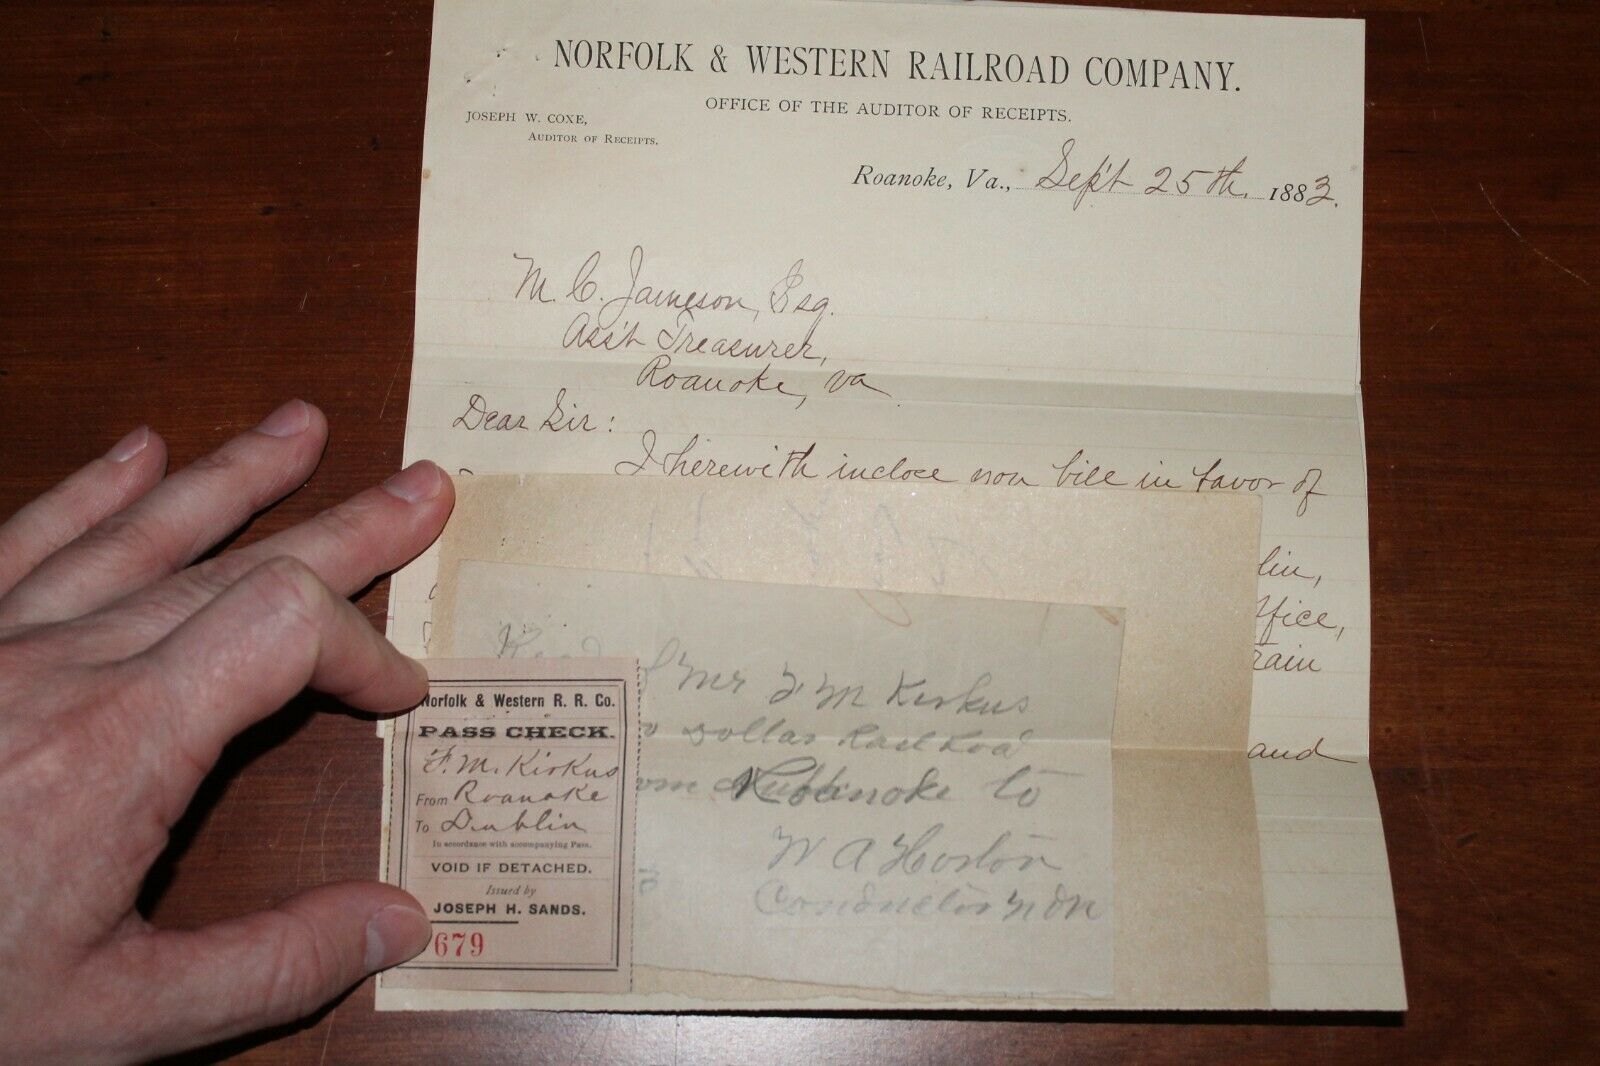 NORFOLK & WESTERN RAILROAD COMPANY.
OFFICE OF THE AUDITOR OF RECEIPTS.
JOSEPH W. COXE,
AUDITOR OF RECEIPTS.
Roanoke, Va., Sept 25th, 1883.
M. C. Jameson, Esq.
Ass't Treasurer,
Roanoke, Va
Dear Sir:
I herewith inclose you bill in favor of
lin,
ffice,
rain
and
Mr F M Kirkus
Dollar Rail Road
Roanoke to
W A Horton
Conductor
Norfolk & Western R. R. Co.
PASS CHECK.
F. M. Kirkus
From Roanoke
To Dublin
In accordance with accompanying Pass.
VOID IF DETACHED.
Issued by
JOSEPH H. SANDS.
679